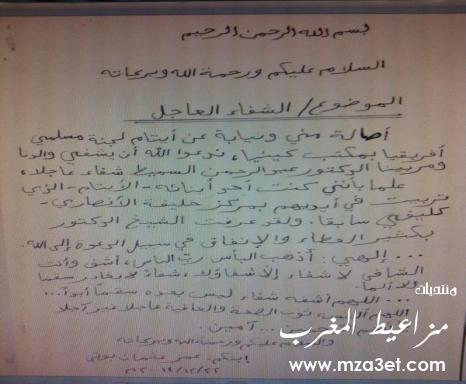 بسم الله الرحمن الرحيم
السلام عليكم ورحمة الله وبركاته
الموضوع/ الشفاء العاجل
أصالة مني ونيابة عن أيتام لجنة مسلمي
أفريقيا بمكتب كينيا، ندعوا الله أن يشفي والدنا
ومربينا الدكتور عبدالرحمن السميط شفاء عاجلا،
علما بأنني كنت أحد أبنائه - الأيتام - الذي
تربيت في أيديهم بمركز خليفة الأنصاري -
سابقا. ولقد عرفت الشيخ الدكتور
بكثير العطاء والإنفاق في سبيل الدعوة إلى الله.
... إلهي: أذهب البأس رب الناس، أشف وأنت
الشافي لا شفاء إلا شفاؤك، شفاء لا يغادر سقما
ولا ألما.
... اللهم أشفه شفاء ليس بعده سقما أبدا...
اللهم ألبسه ثوب الصحة والعافية عاجلا غير آجلا
... آمين.
والسلام عليكم ورحمة الله وبركاته
إبنكم. عمر عثمان
منتديات
مزاعيط المغرب
www.mza3et.com